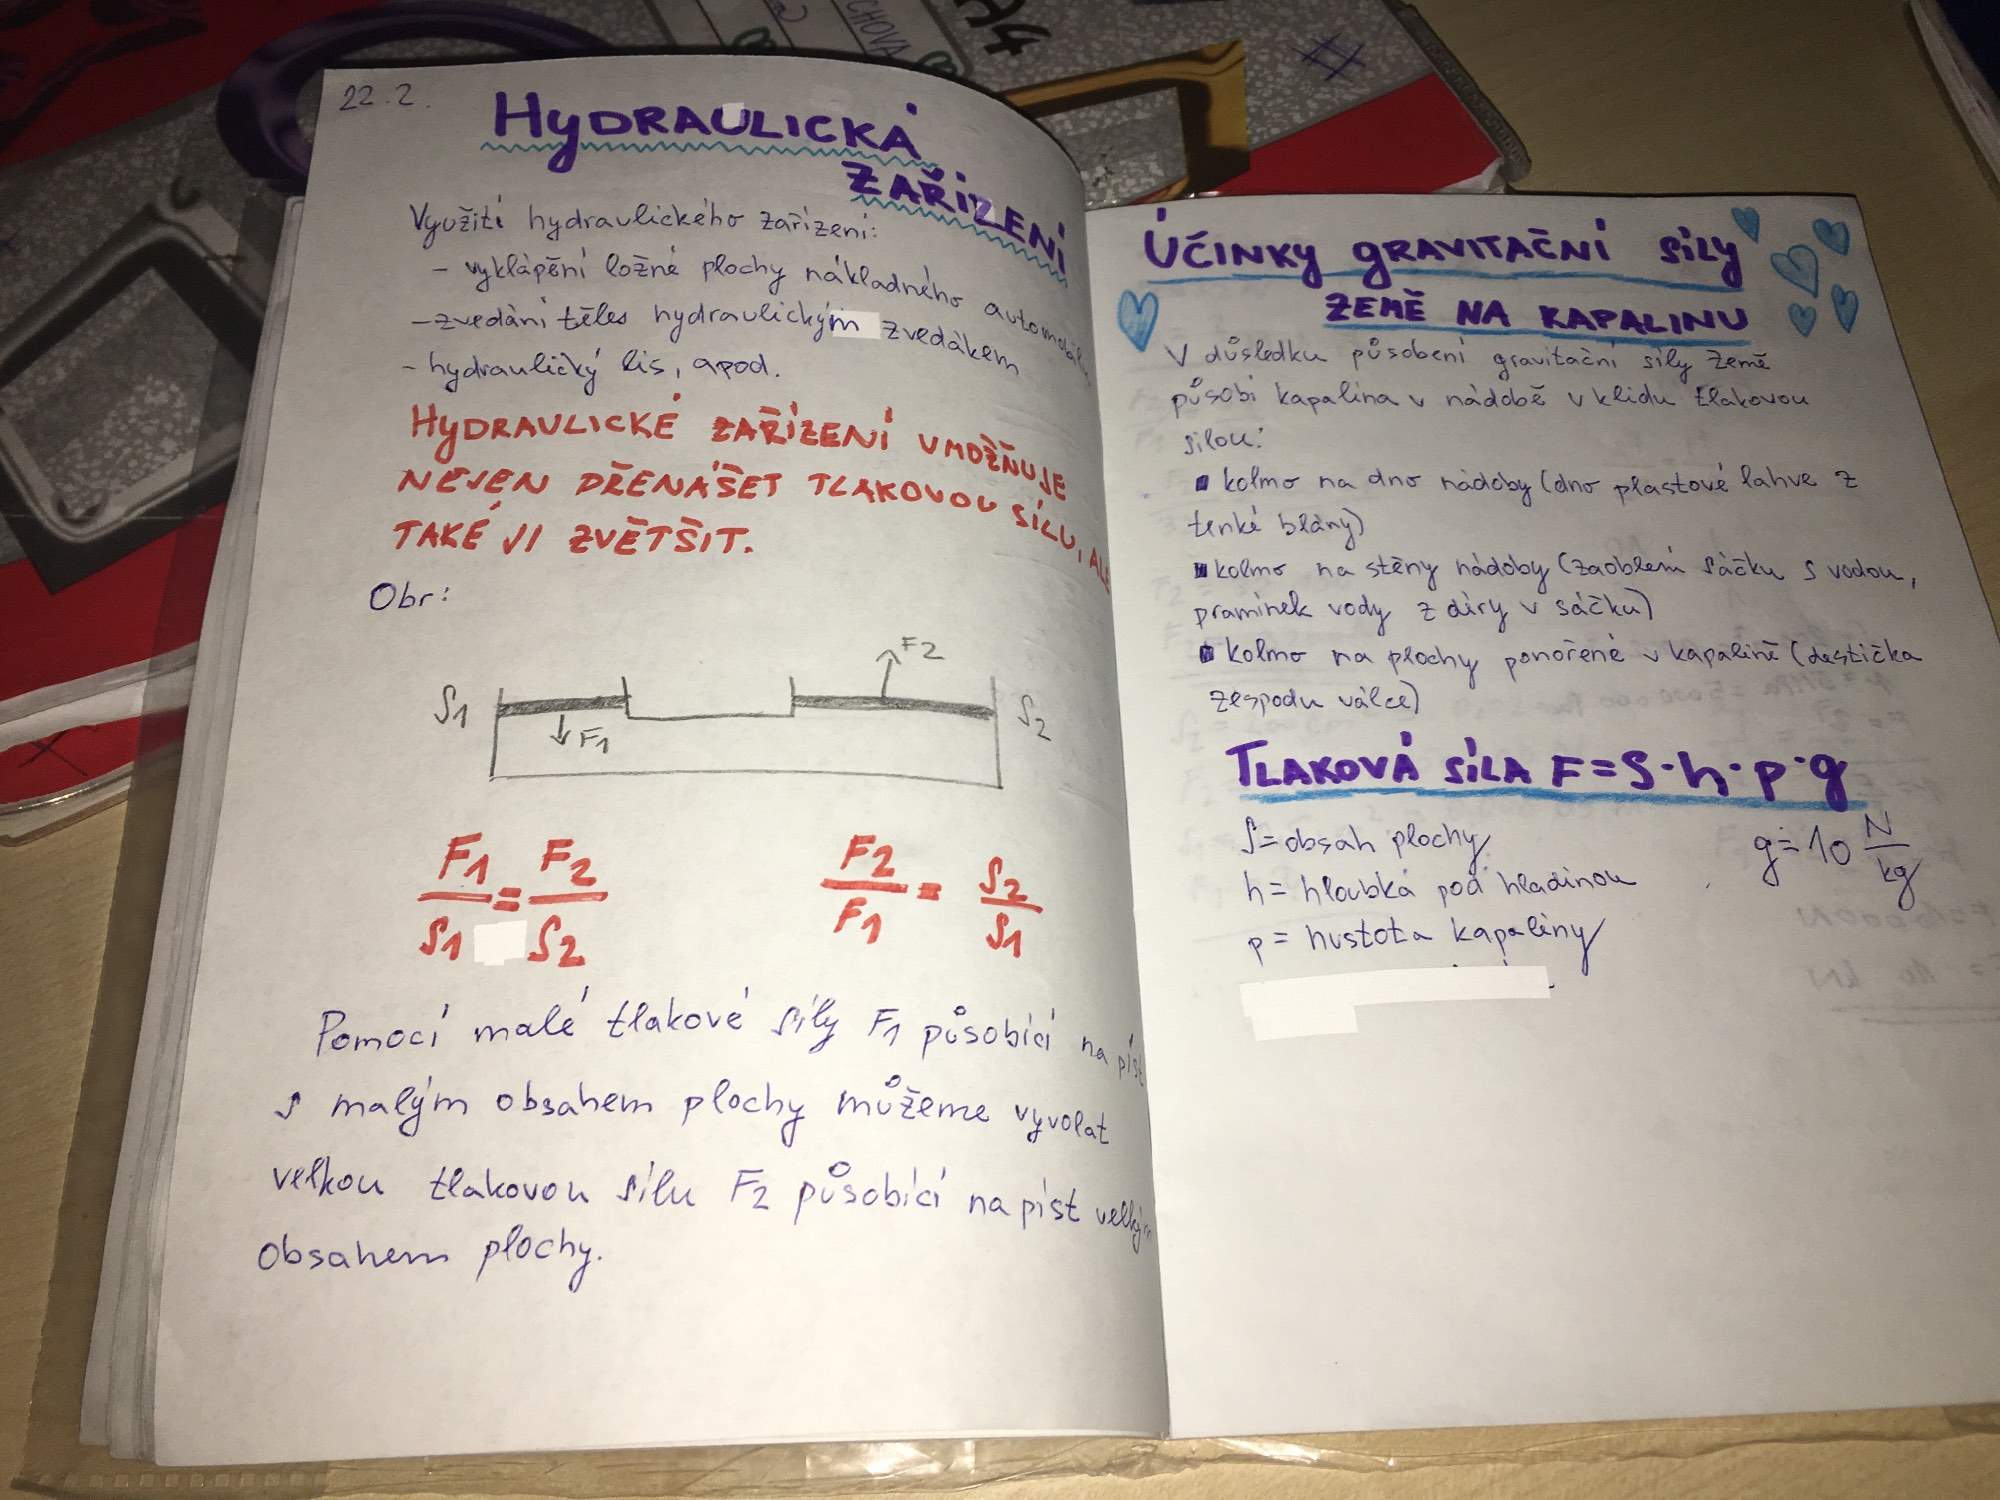 22.2.
HYDRAULICKÁ
ZAŘÍZENÍ
Využití hydraulického zařízení:
- vyklápění ložné plochy nákladného
- zvedání těles hydraulickým zvedákem
- hydraulický lis, apod.
HYDRAULICKÉ ZAŘÍZENÍ UMOŽŇUJE
NEJEN PŘENÁŠET TLAKOVOU SÍLU, ALE
TAKÉ JI ZVĚTŠIT.
Obr:
F2
S1 S2
F1
F1/S1 = F2/S2 F2/F1 = S2/S1
Pomocí malé tlakové síly F1 působící na píst
s malým obsahem plochy můžeme vyvolat
velkou tlakovou sílu F2 působící na píst velkým
obsahem plochy.
ÚČINKY GRAVITAČNÍ SÍLY
ZEMĚ NA KAPALINU
V důsledku působení gravitační síly Země
působí kapalina v nádobě v klidu tlakovou
silou:
▪ kolmo na dno nádoby (dno plastové lahve z
tenké blány)
▪ kolmo na stěny nádoby (zaoblení sáčku s vodou,
pramínek vody z díry v sáčku)
▪ kolmo na plochy ponořené v kapalině (destička
zespodu válce)
TLAKOVÁ SÍLA F=S·h·p·g
S=obsah plochy g≐10 N/kg
h= hloubka pod hladinou
p= hustota kapaliny
CHOVA
A4